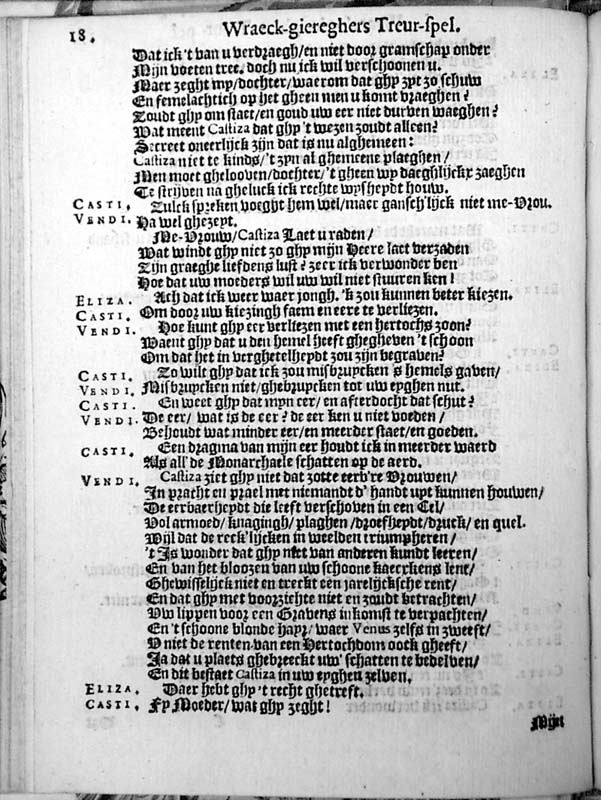 18. Wraeck-giereghers Treur-spel.
Dat ick 't van u verdraegh/en niet door gramschap onder
Mijn voeten tree. doch nu ick wil verschoonen u.
Maer zeght my/dochter/waerom dat ghy zyt zo schuw
En femelachtich op het gheen men u komt vraeghen?
Zoudt ghy om staet/en goud uw eer niet durven waeghen?
Wat meent Castiza dat ghy 't wezen zoudt alleen?
Secreet oneerlijck zijn dat is nu alghemeen:
Castiza niet te kinds/'t zyn al ghemeene plaeghen/
Men moet ghelooven/dochter/'t gheen wy daeghlijckx zaeghen
Te strijven na gheluck ick rechte wysheydt houw.
CASTI. Zulck spreken voeght hem wel/maer gansch'lyck niet me-Vrou.
VENDI. Ha wel ghezeyt.
Me-Vrouw/Castiza Laet u raden/
Wat windt ghy niet zo ghy mijn Heere laet verzaden
Zijn graeghe liefdens lust? zeer ick verwonder ben
Hoe dat uw moeders wil uw wil niet stuuren ken!
ELIZA. Ach dat ick weer waer jongh. 'k zou kunnen beter kiezen.
CASTI. Om door uw kiezingh faem en eere te verliezen.
VENDI. Hoe kunt ghy eer verliezen met een hertochs zoon?
Waent ghy dat u den hemel heeft ghegheven 't schoon
Om dat het in verghetelheydt zou zijn begraven?
CASTI. Zo wilt ghy dat ick zou misbruycken 's hemels gaven/
VENDI. Misbruycken niet/ghebruycken tot uw eyghen nut.
CASTI. En weet ghy dat myn eer/ en afterdocht dat schut?
VENDI. De eer/ wat is de eer? de eer ken u niet voeden/
Behoudt wat minder eer/en meerder staet/en goeden.
CASTI. Een dragma van mijn eer houdt ick in meerder waerd
Als all' de Monarchaele schatten op de aerd.
VENDI. Castiza ziet ghy niet dat zotte eerb're Vrouwen/
In pracht en prael met niemandt d' handt uyt kunnen houwen/
De eerbaerheydt die leeft verschoven in een Cel/
Vol armoed/ knagingh/ plaghen/droefheydt/druck/ en quel.
Wijl dat de reck'lijcken in weelden triumpheren/
't Is wonder dat ghy niet van anderen kundt leeren/
En van het bloozen van uw schoone kaeckens lent/
Ghewisselijck niet en treckt een jarelijcksche rent/
En dat ghy met voorzichte niet en zoudt betrachten/
Uw lippen voor een Gravens inkomst te verpachten/
En 't schoone blonde hayr/ waer Venus zelfs in zweeft/
U niet de renten van een Hertochdom oock gheeft/
Ja dat u plaets ghebreeckt uw' schatten te bedelven/
En dit bestaet Castiza in uw eyghen zelven.
ELIZA. Daer hebt ghy 't recht ghetreft.
CASTI. Fy Moeder/ wat ghy zeght!
Mijst